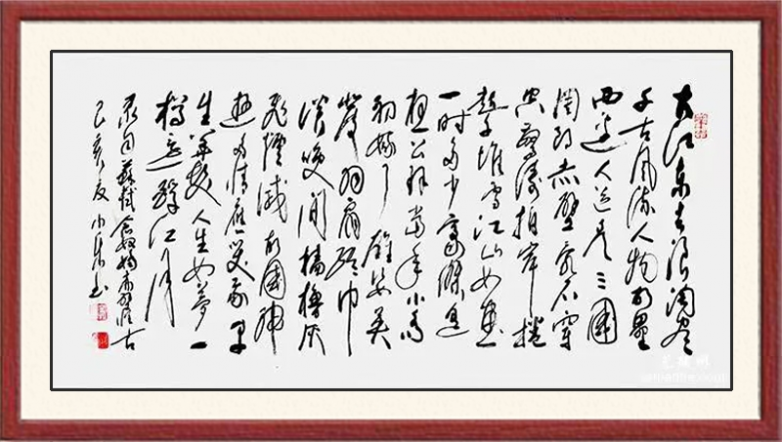 大江东去浪淘尽
千古风流人物故垒
西边人道是三国
周郎赤壁乱石穿
空惊涛拍岸捲
起千堆雪江山如画
一时多少豪杰遥
想公瑾当年小乔
初嫁了雄姿英
发羽扇纶巾
谈笑间樯橹灰
飞烟灭故国神
游多情应笑我早
生华发人生如梦一
樽还酹江月
录自苏轼念奴娇赤壁怀古
己亥夏小乐书